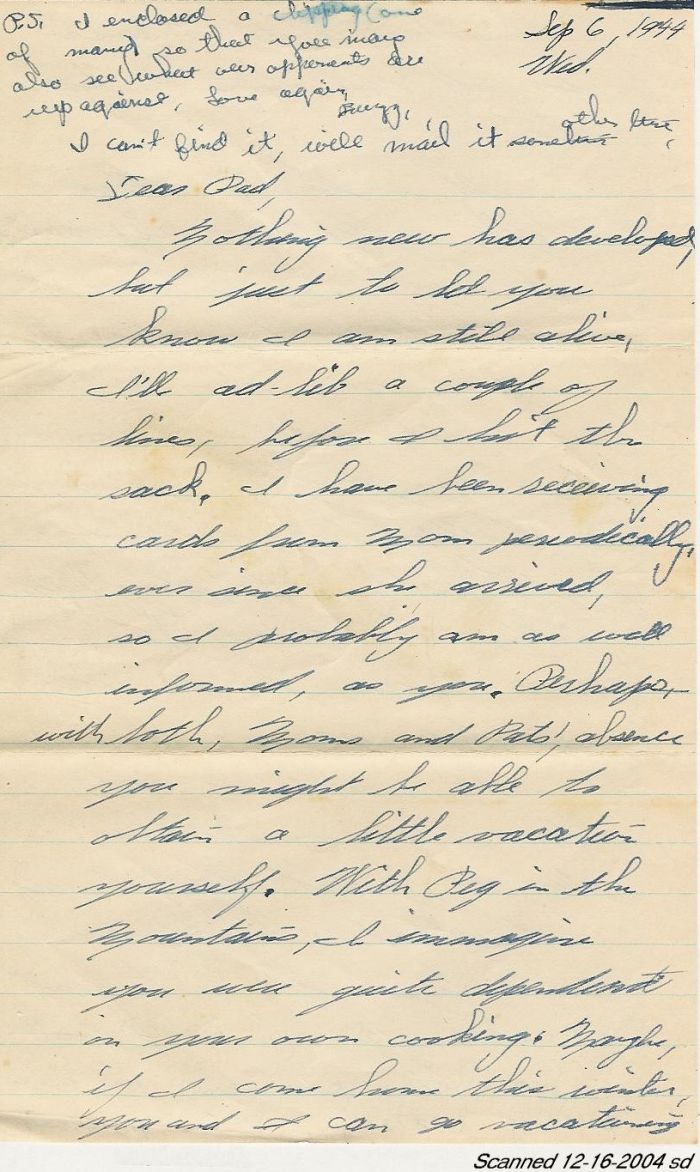 P.S. I enclosed a clipping (one
of many) so that you may
also see what our opponents are
up against, Love again,
I can't find it, will mail it some other time,
Sep 6, 1944
Wed.
Dear Dad,
Nothing new has developed,
but just to let you
know I am still alive,
I'll ad-lib a couple of
lines, before I hit the
sack. I have been receiving
cards from Mom periodically,
ever since she arrived,
so I probably am as well
informed, as you. Perhaps,
with both, Moms and Pats', absence
you might be able to
obtain a little vacation
yourself. With Peg in the
Mountains, I immagine
you were quite dependent
on your own cooking. Maybe,
if I come home this winter,
you and I can go vacationing
Scanned 12-16-2004 sd